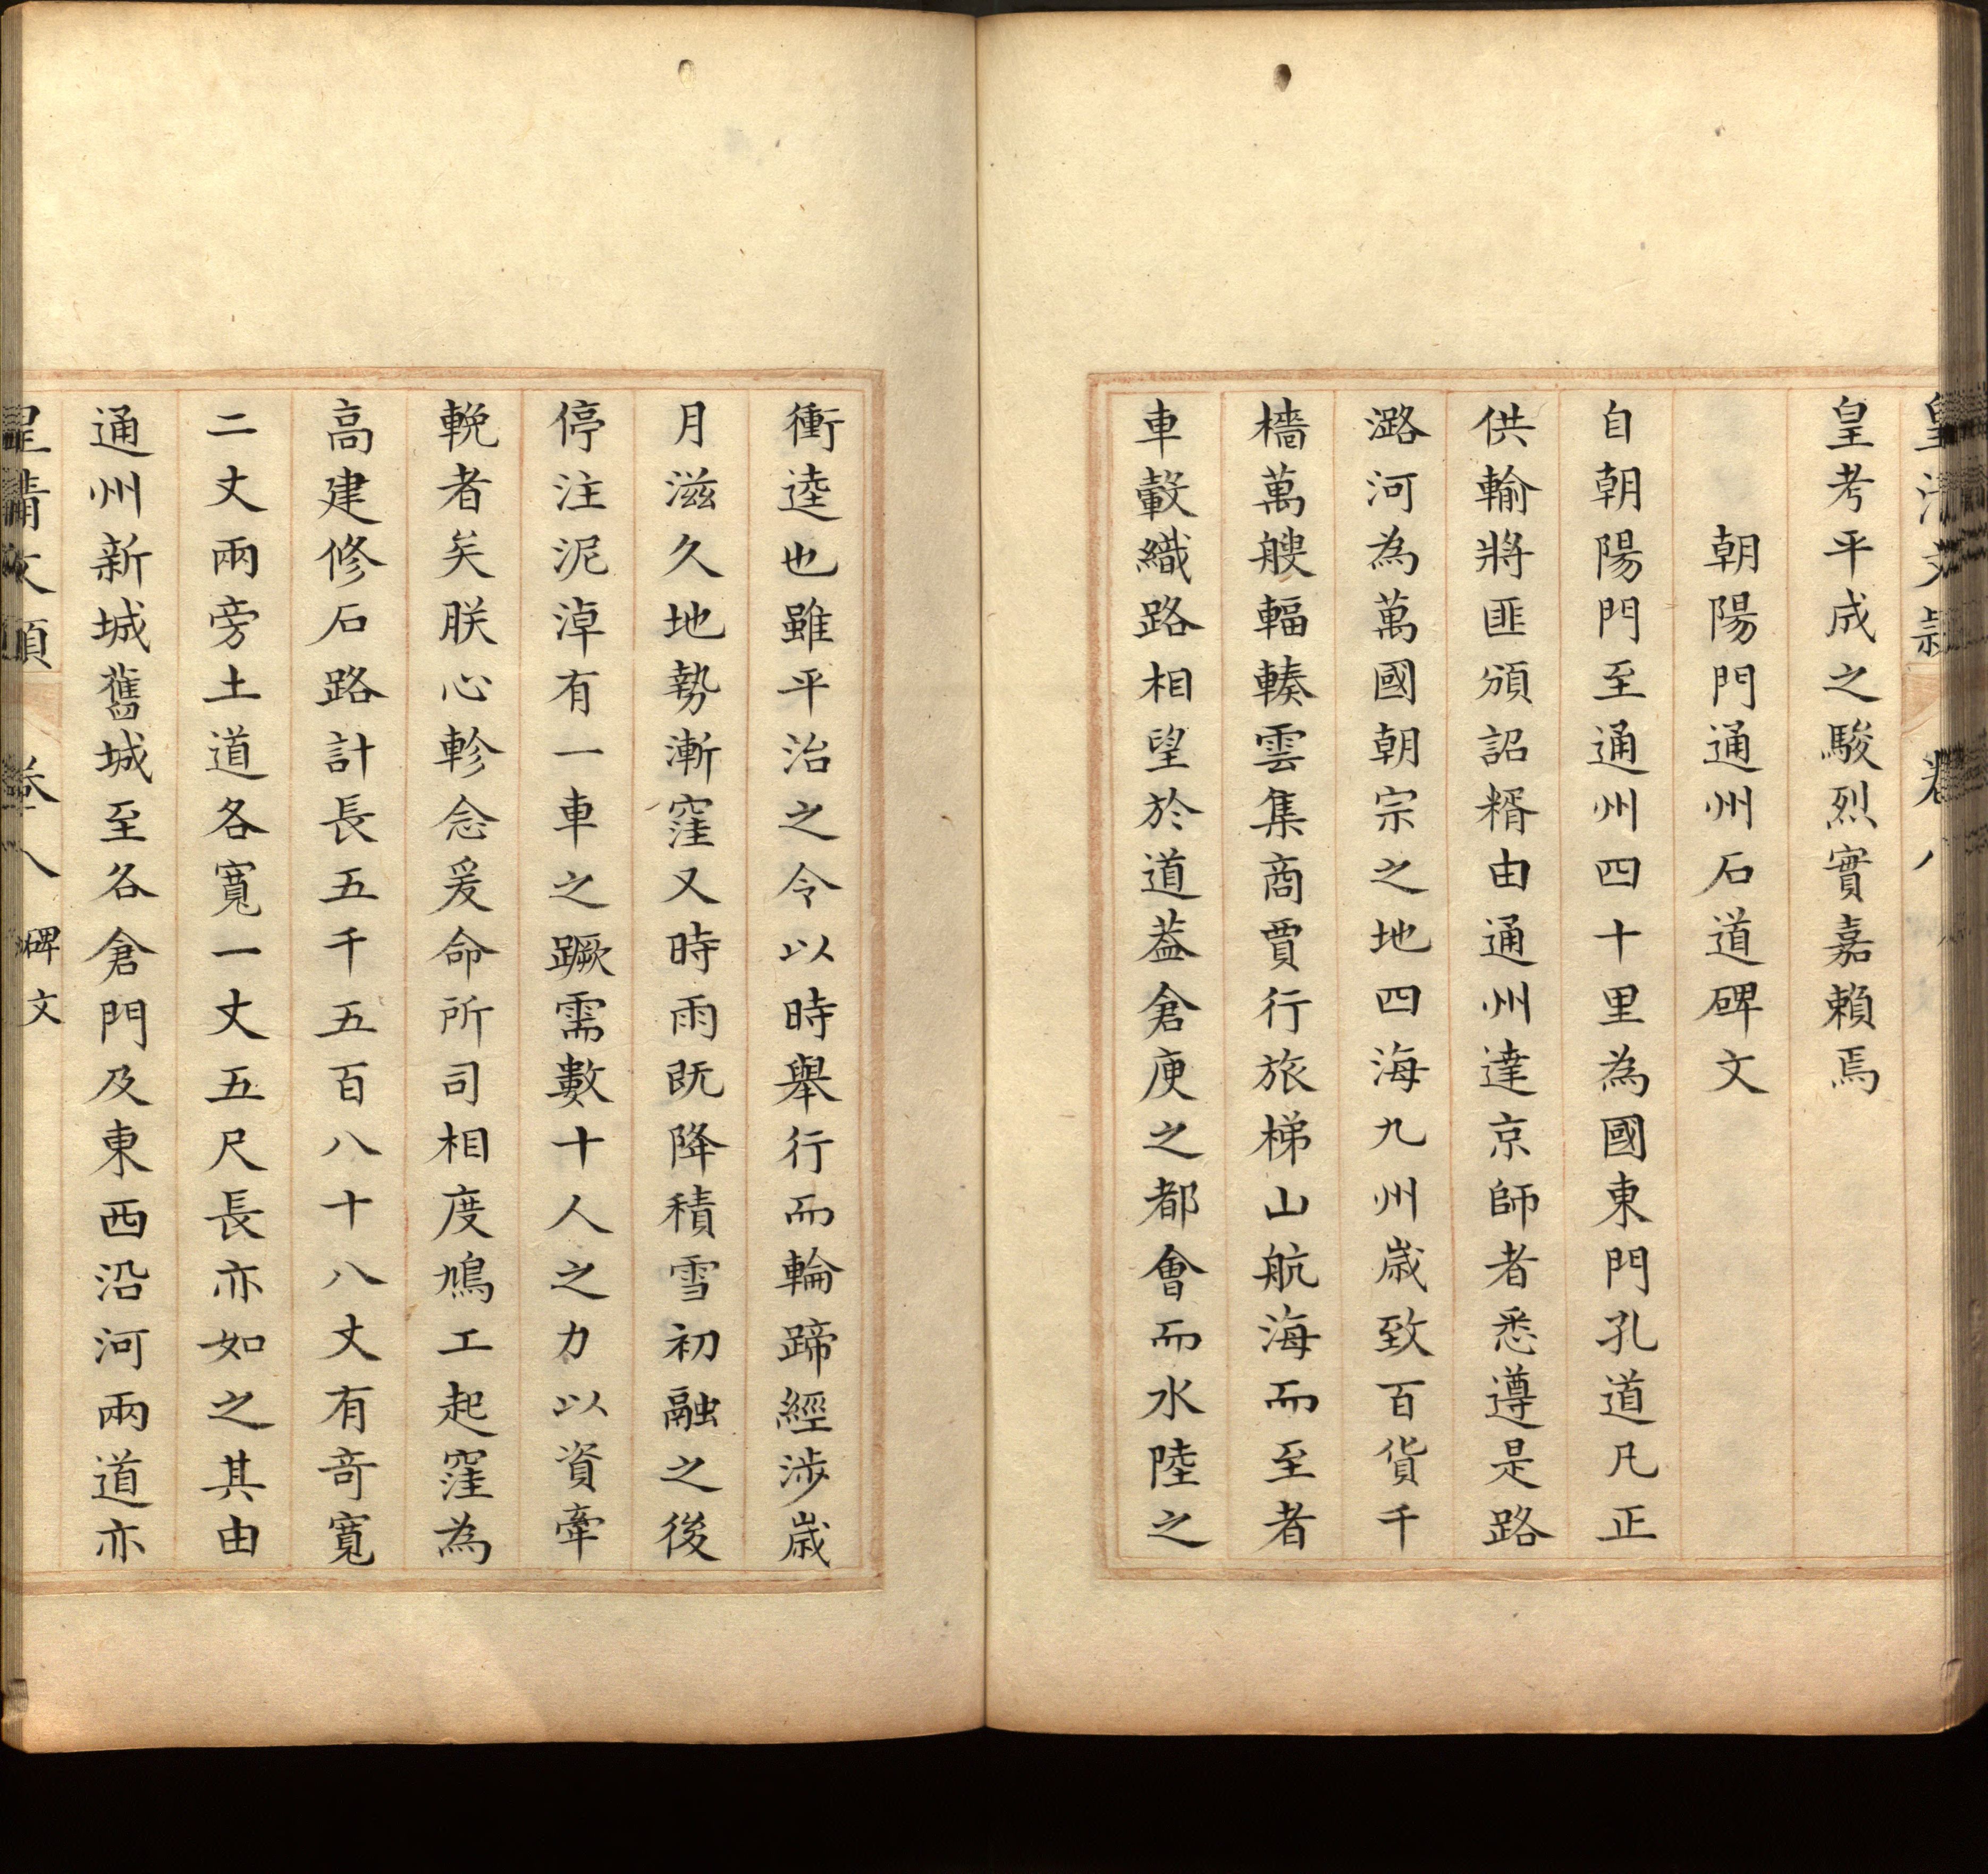 皇清文穎 卷八
皇考平成之駿烈實嘉賴焉
朝陽門通州石道碑文
自朝陽門至通州四十里為國東門孔道凡正
供輸將匪頒詔糈由通州達京師者悉遵是路
潞河為萬國朝宗之地四海九州歲致百貨千
檣萬艘輻輳雲集商賈行旅梯山航海而至者
車轂織路相望於道葢倉庾之都會而水陸之
衝逵也雖平治之令以時舉行而輪蹄經涉歲
月滋久地勢漸窪又時雨既降積雪初融之後
停注泥淖有一車之蹶需數十人之力以資牽
輓者矣朕心軫念爰命所司相度鳩工起窪為
高建修石路計長五千五百八十八丈有奇寬
二丈兩旁土道各寬一丈五尺長亦如之其由
通州新城舊城至各倉門及東西沿河兩道亦
皇清文穎 卷八 碑文